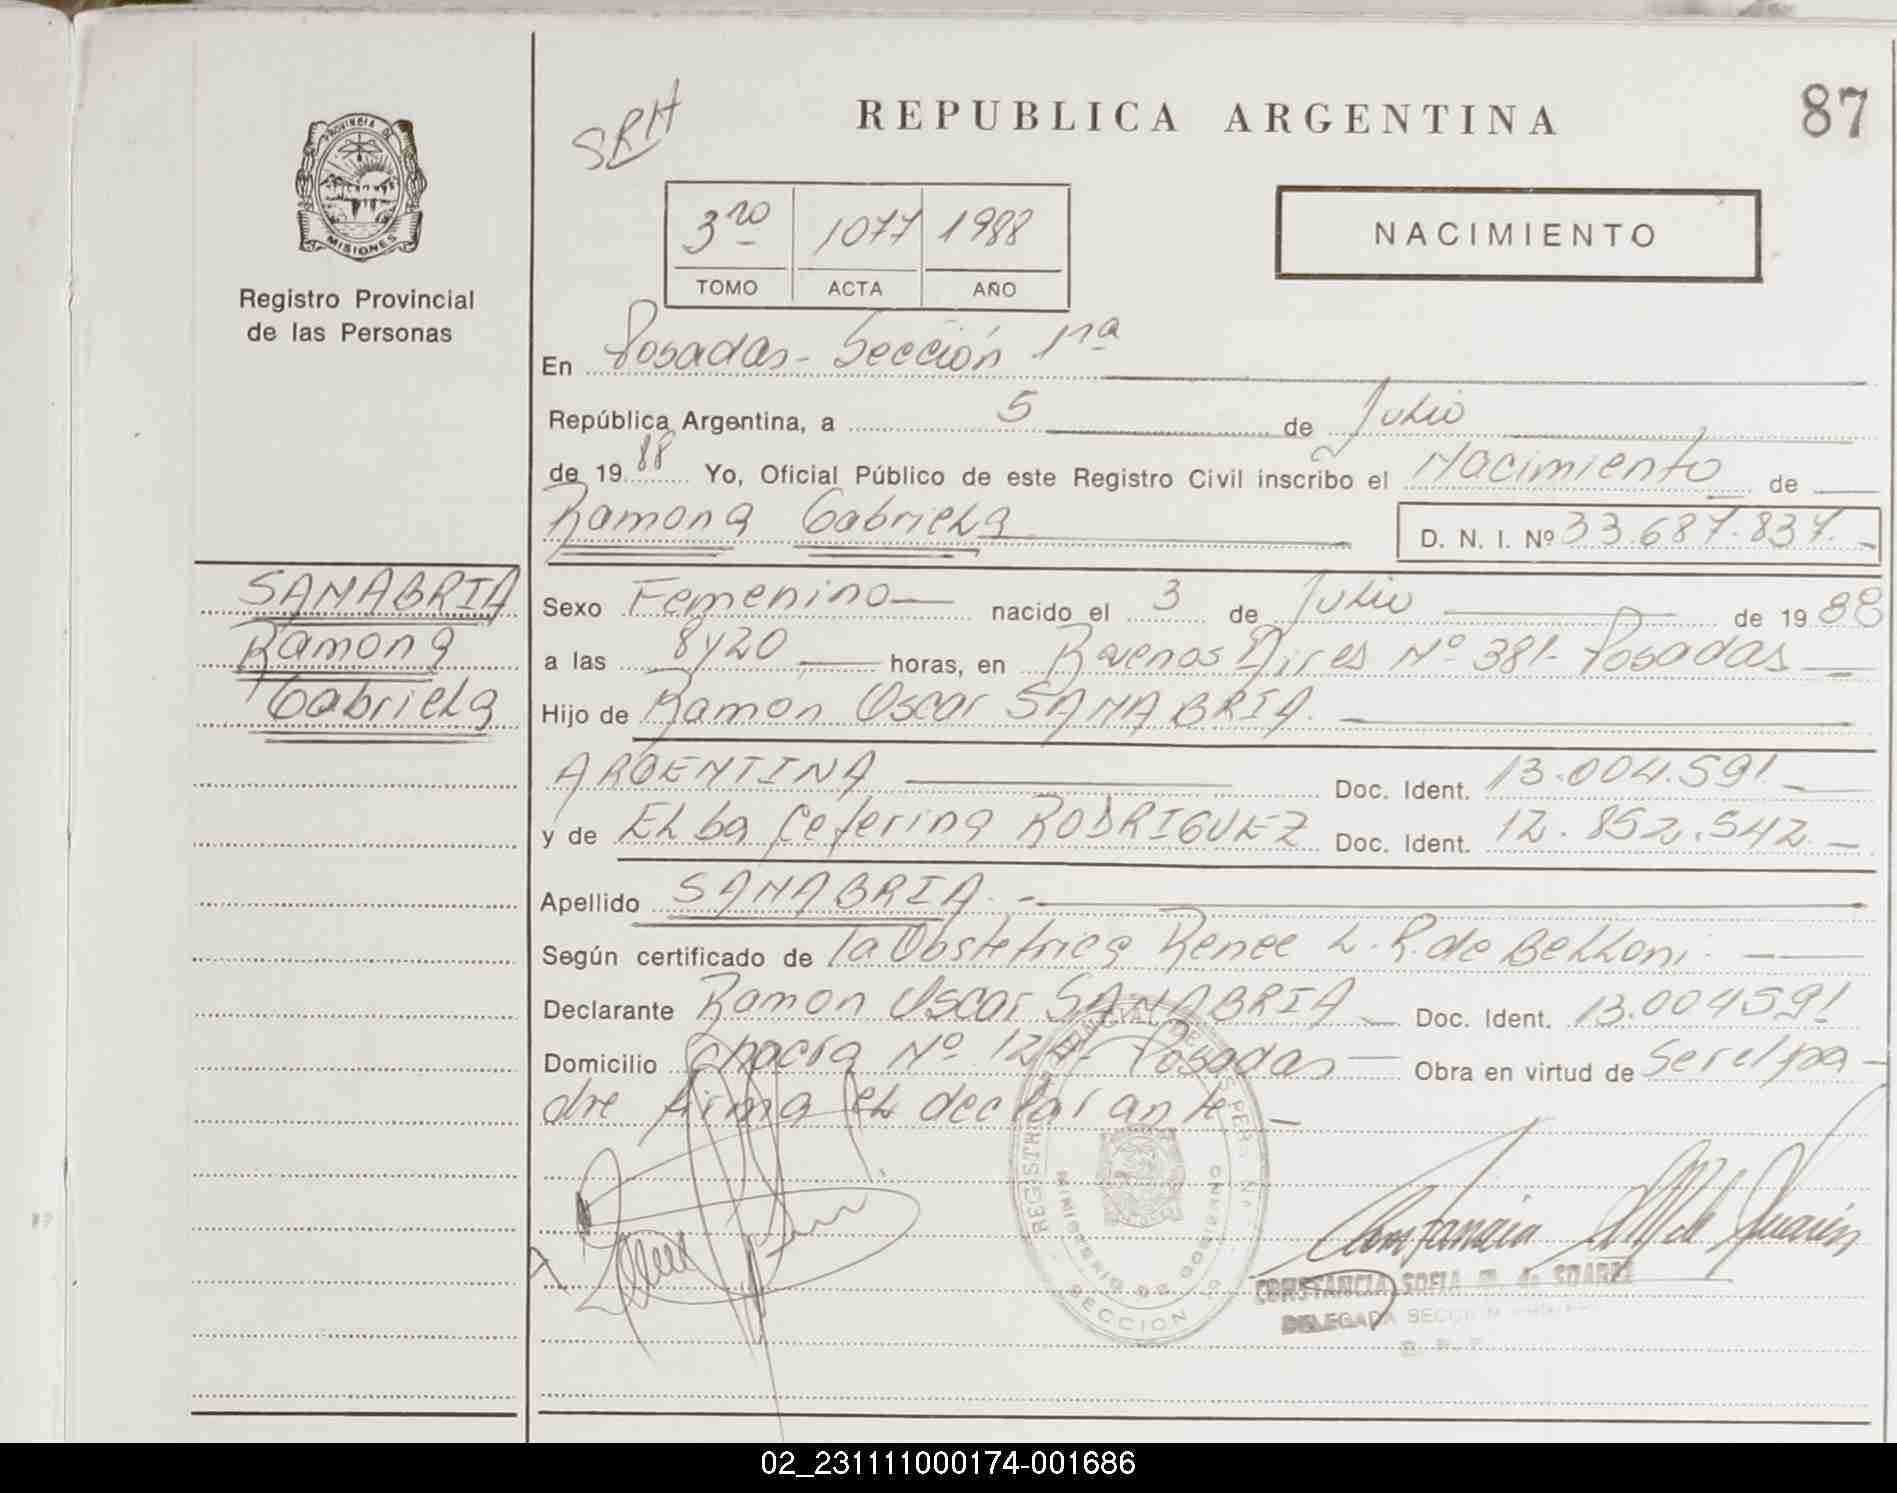 SRH
REPUBLICA ARGENTINA
87
PROVINCIA DE
MISIONES
Registro Provincial
de las Personas
3ro 1077 1988
TOMO ACTA AÑO
NACIMIENTO
En Posadas - Sección 1ra
República Argentina, a 5 de Julio
de 1988 Yo, Oficial Público de este Registro Civil inscribo el Nacimiento de
Ramona Gabriela D. N. I. Nº 33.687.837.-
SANABRIA
Ramona
Gabriela
Sexo Femenino nacido el 3 de Julio de 1988
a las 8y20 horas, en Buenos Aires Nº 381- Posadas
Hijo de Ramon Oscar SANABRIA.
ARGENTINA Doc. Ident. 13.004.591.
y de Elba Ceferina RODRIGUEZ Doc. Ident. 12.852.542.
Apellido SANABRIA.-
Según certificado de la Obstetrica Renee L. R. de Belloni.
Declarante Ramon Oscar SANABRIA Doc. Ident. 13.004591
Domicilio Chacra Nº 124- Posadas Obra en virtud de ser el pa-
dre firma el declarante-
MINISTERIO DE GOBIERNO
SECCION
CONSTANCIA SOFIA M. de SOAREZ
DELEGADA SECCION
02_231111000174-001686